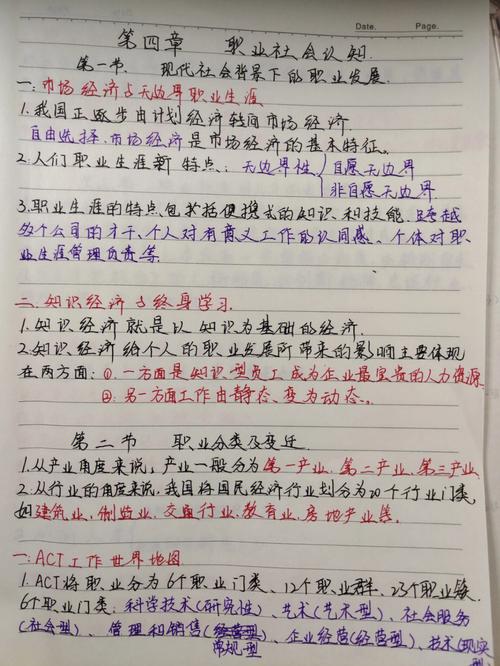 Date. Page.
第四章 职业社会认知.
第一节. 现代社会背景下的职业发展.
一:市场经济与无边界职业生涯
1.我国正逐步由计划经济转向市场经济.
自由选择.市场经济是市场经济的基本特征。
2.人们职业生涯新特点:无边界性 自愿无边界
非自愿无边界
3.职业生涯的特点包括便携式的知识和技能、跨越
多个公司的才干、个人对有意义工作的认同感、个体对职
业生涯管理负责等.
二.知识经济与终身学习.
1.知识经济就是以知识为基础的经济.
2.知识经济给个人的职业发展所带来的影响主要体现
在两方面:①.一方面是知识型员工成为企业最宝贵的人力资源
②.另一方面工作由静态、变为动态。.
第二节 职业分类及变迁.
1.从产业角度来说,产业一般分为第一产业.第二产业.第三产业.
2.从行业的角度来说,我国将国民经济行业划分为20个行业门类,
如建筑业,制造业,交通行业,教育业.房地产业等.
一:ACT工作世界地图
1.ACT将职业分为6个职业门类、12个职业群、23个职业簇.
6个职业门类:科学技术(研究性)、艺术(艺术型)、社会服务
(社会型)、管理和销售(经营型)、企业经营(经营型)、技术(现实
常规型 型